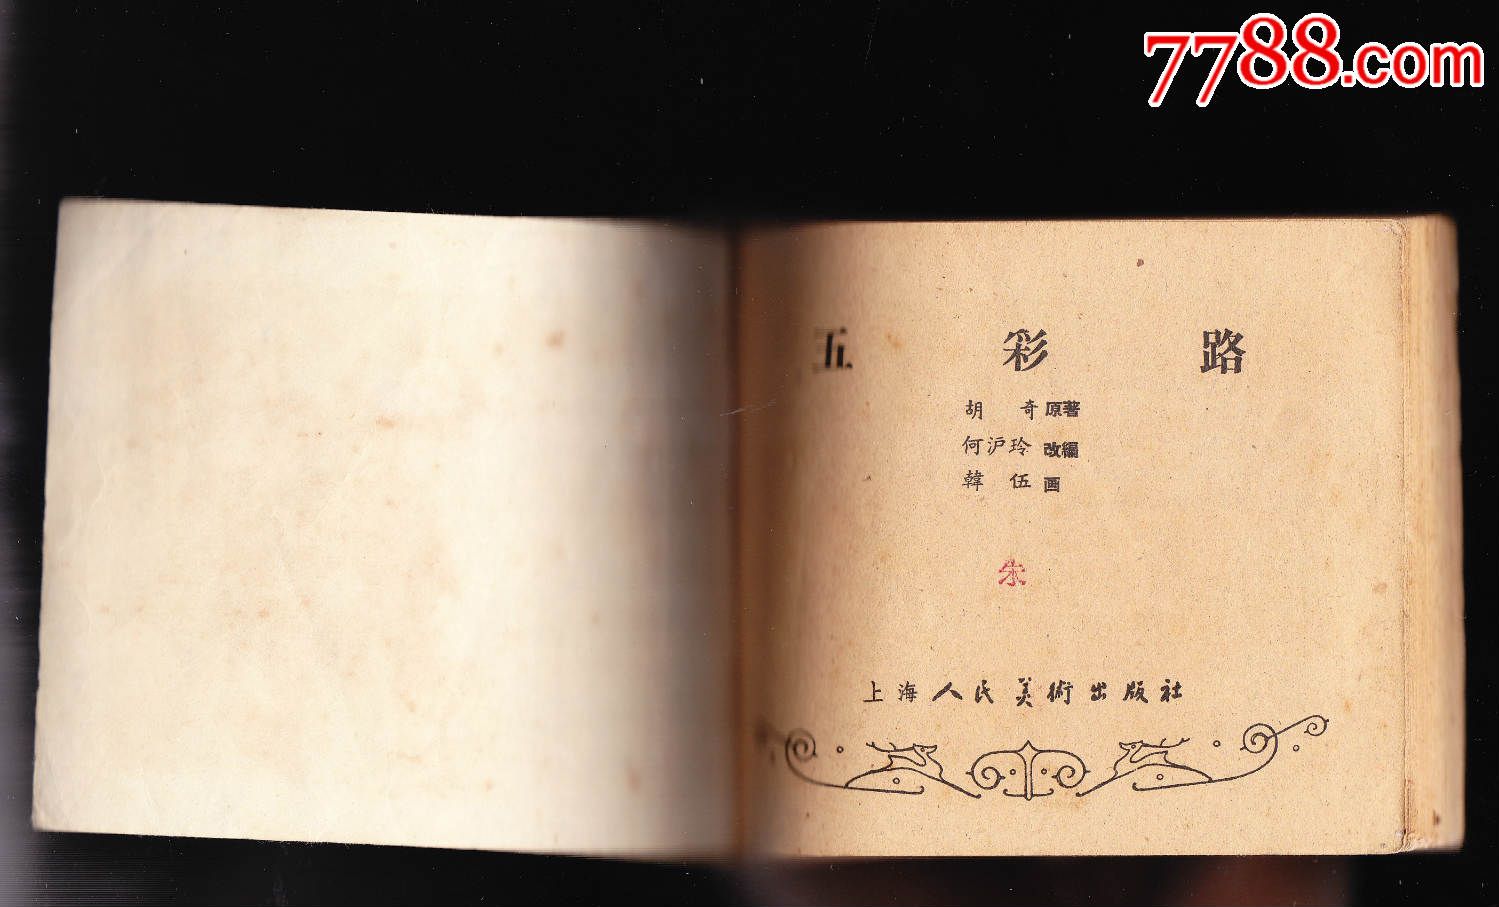 7788.com
五彩路
胡奇原著
何沪玲改编
韓伍画
朱
上海人民美術出版社